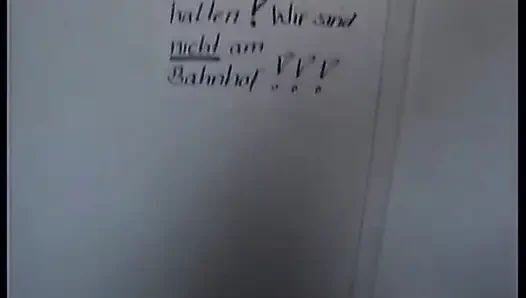 halten! Wir sind
nicht am
Bahnhof !!!